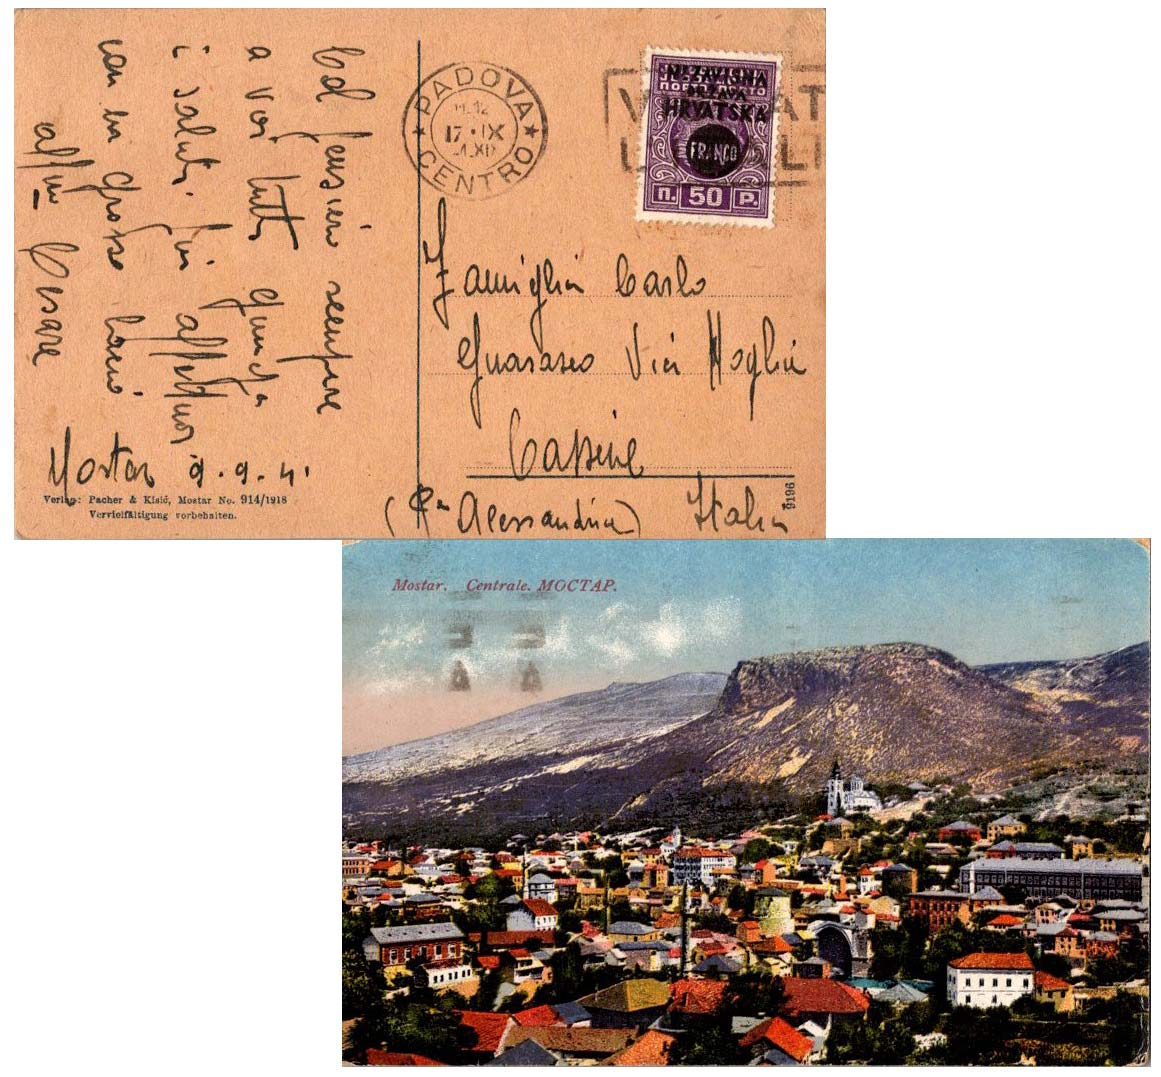 Col pensiero sempre
a voi tutti giunga
i saluti più affettuosi
con un grosso bacio
aff.mo Cesare
Mostar 9.9.41
Verlag: Pacher & Kisić, Mostar No. 914/1918
Vervielfältigung vorbehalten.
PADOVA
17·IX
CENTRO
NEZAVISNA
DRŽAVA
HRVATSKA
FRANCO
П. 50 P.
Famiglia Carlo
Guarasco Via
Cassine
(Alessandria) Italia
9196
Mostar. Centrale. МОСТАР.